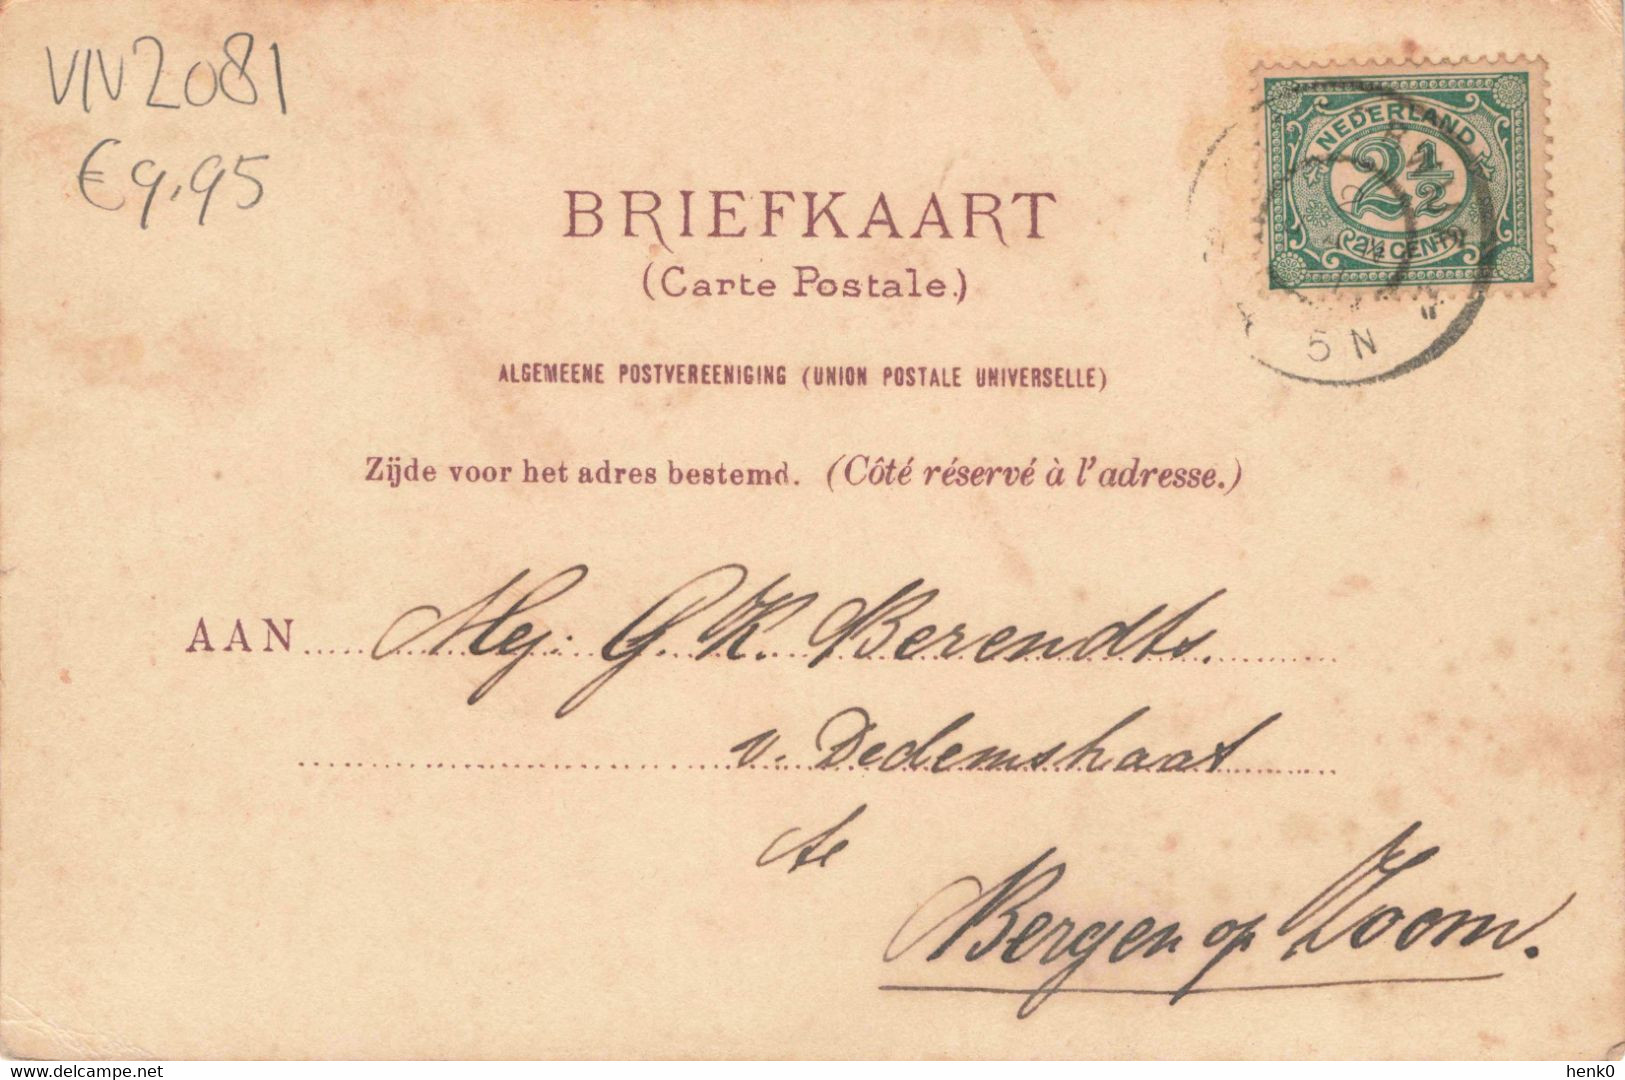 VIV2081
€9,95
NEDERLAND
2½
2½ CENT
5 N
BRIEFKAART
(Carte Postale.)
ALGEMEENE POSTVEREENIGING (UNION POSTALE UNIVERSELLE)
Zijde voor het adres bestemd. (Côté réservé à l'adresse.)
AAN Mej: G. K. Berendts.
v. Dedemstraat
te
Bergen op Zoom.
https://www.delcampe.net
henk0